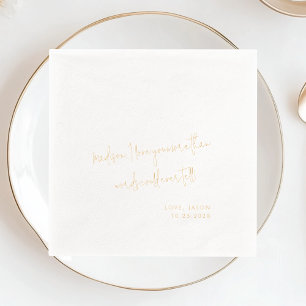 Madison, I love you more than
words could ever tell
LOVE, JASON
10.25.2026